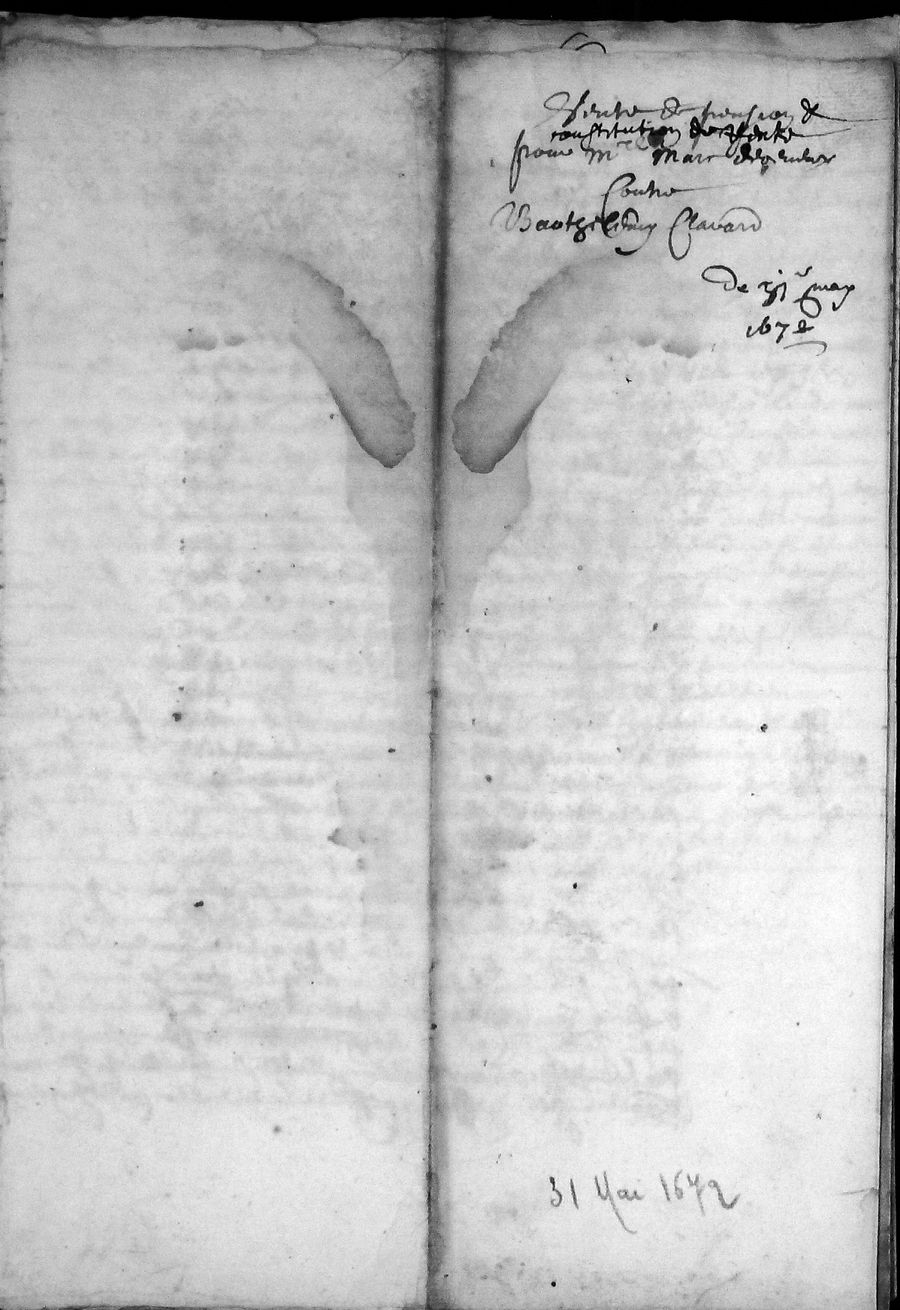 Vente de pension &
constitution de Rente
pour Mre Marc
Contre
Barthelemy Clavard
De may
1672
31 Mai 1672